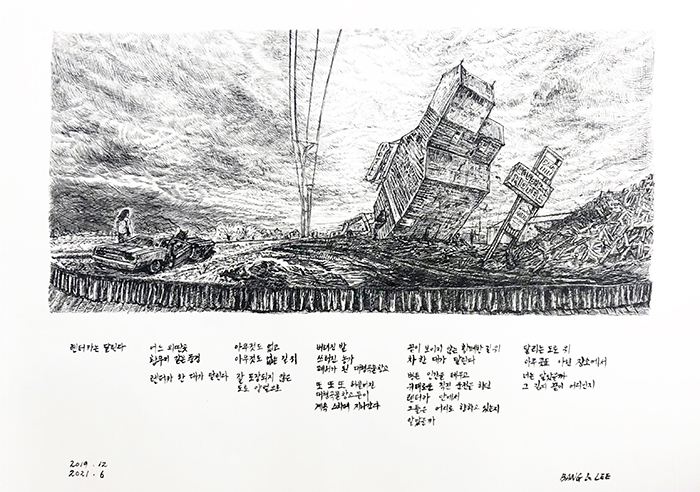 렌터카는 달린다
어느 외딴곳
황무지 같은 풍경
렌터카 한 대가 달린다
아무것도 없고
아무것도 없는 길 위
잘 포장되지 않은
도로 앞으로
버려진 밭
쓰러진 농가
폐허가 된 대형곡물창고
또 또 또 허물어진
대형곡물창고들이
계속 스치며 지나간다
끝이 보이지 않는 황폐한 길 위
차 한 대가 달린다
인간을 태우고
위태로운 직진 운전을 하던
렌터카 안에서
그들은 어디로 향하고 있는지
알았을까
달리는 도로 위
아무곳도 아닌 장소에서
너는 알았을까
그 길의 끝이 어디인지
2019.12
2021.6
BANG & LEE